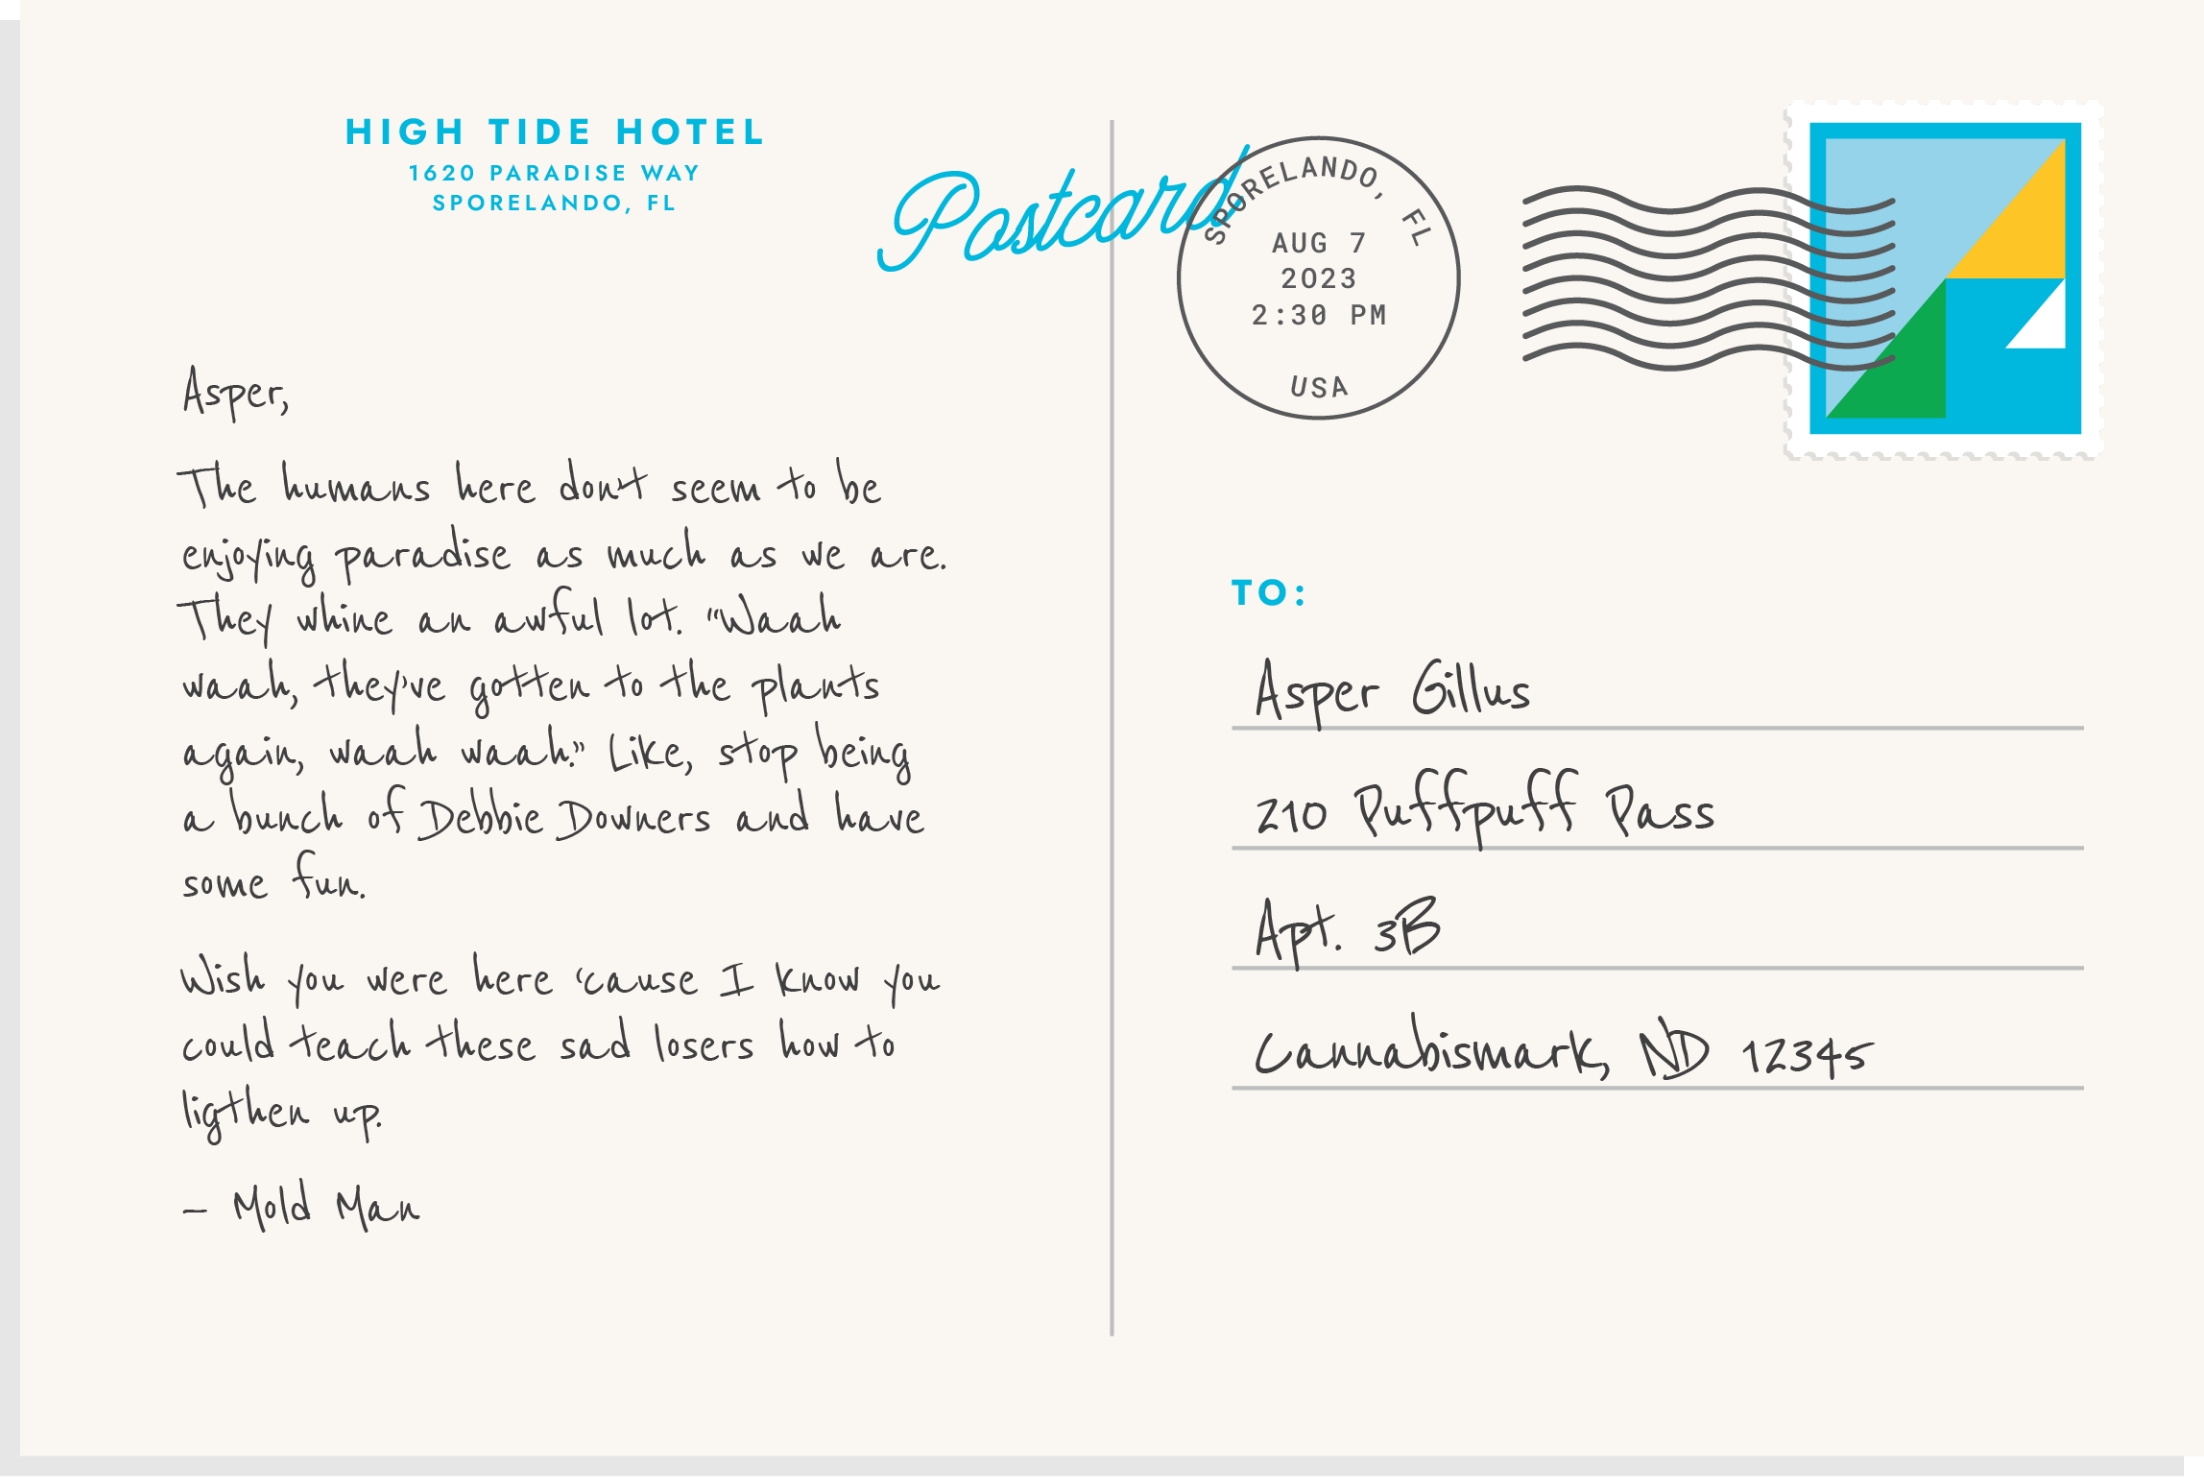 HIGH TIDE HOTEL
1620 PARADISE WAY
SPORELANDO, FL
Postcard
Asper,
The humans here don't seem to be
enjoying paradise as much as we are.
They whine an awful lot. "Waah
waah, they've gotten to the plants
again, waah waah." Like, stop being
a bunch of Debbie Downers and have
some fun.
Wish you were here 'cause I know you
could teach these sad losers how to
ligthen up.
– Mold Man
SPORELANDO, FL
AUG 7
2023
2:30 PM
USA
TO:
Asper Gillus
210 Puffpuff Pass
Apt. 3B
Cannabismark, ND 12345